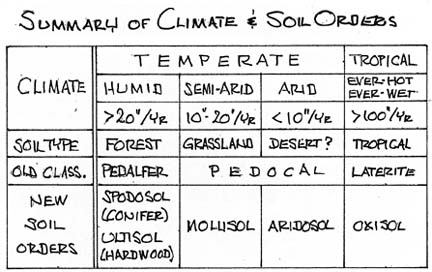 SUMMARY OF CLIMATE & SOIL ORDERS
CLIMATE
TEMPERATE
TROPICAL
HUMID
SEMI-ARID
ARID
EVER-HOT
EVER-WET
>20"/YR
10"-20"/YR
<10"/YR
>100"/YR
SOIL TYPE
FOREST
GRASSLAND
DESERT?
TROPICAL
OLD CLASS.
PEDALFER
PEDOCAL
LATERITE
NEW
SOIL
ORDERS
SPODOSOL
(CONIFER)
ULTISOL
(HARDWOOD)
MOLLISOL
ARIDOSOL
OXISOL